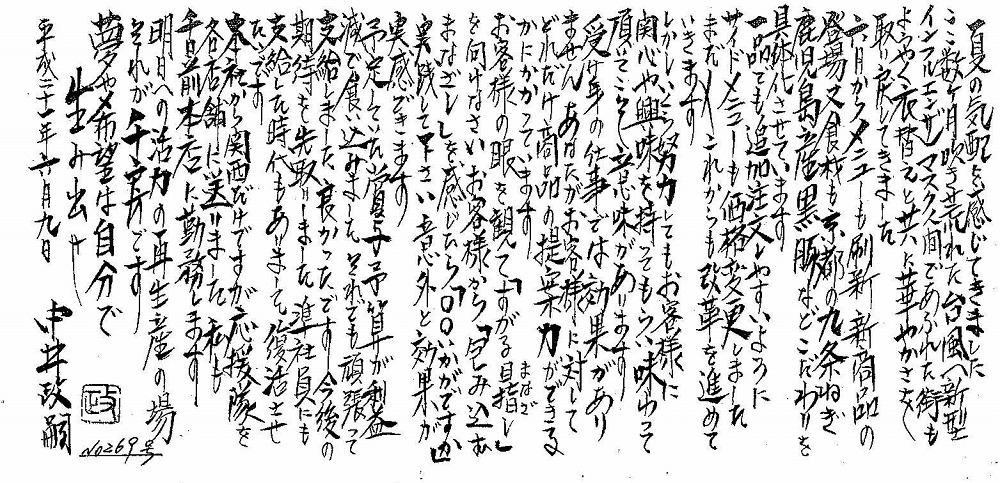 夏の気配を感じてきました
ここ数ヶ月吹き荒れた台風へ新型
インフルエンザ、マスク人間であふれた街も
ようやく衣替えと共に華やかさを
取り戻してきました
六月からメニューも刷新 新商品の
登場又食材も京都の九条ねぎ
鹿児島産黒豚などこだわりを
具体化させています
一品でも追加注文しやすいように
サイドメニューも価格変更しました
まだまだこれからも改革を進めて
いきます
しかしいくら努力してもお客様に
関心や興味を持ってもらい味わって
頂いてこそ意味があります
受け身の仕事では効果があり
ません あなたがお客様に対して
どれだけ商品の提案力ができる
かにかかっています
お客様の眼を観て「すがる目指し」
を向けなさい お客様から「包み込む
まなざし」を感じたら「〇〇いかがですか」
実践して下さい 意外と効果が
実感できます
予定していた賞与予算が利益
減で食い込みました それでも頑張って
支給しました 良かったです 今後の
期待を先取りしました 準社員にも
支給した時代もありまして復活させ
たいです
東本社から関西だけですが応援隊を
各店舗に送りました 私も
千日前本店に勤務します
明日への活力の再生産の場
それが千房です
夢や希望は自分で
生み出しや
平成二十一年六月九日
中井政嗣
政
No269号